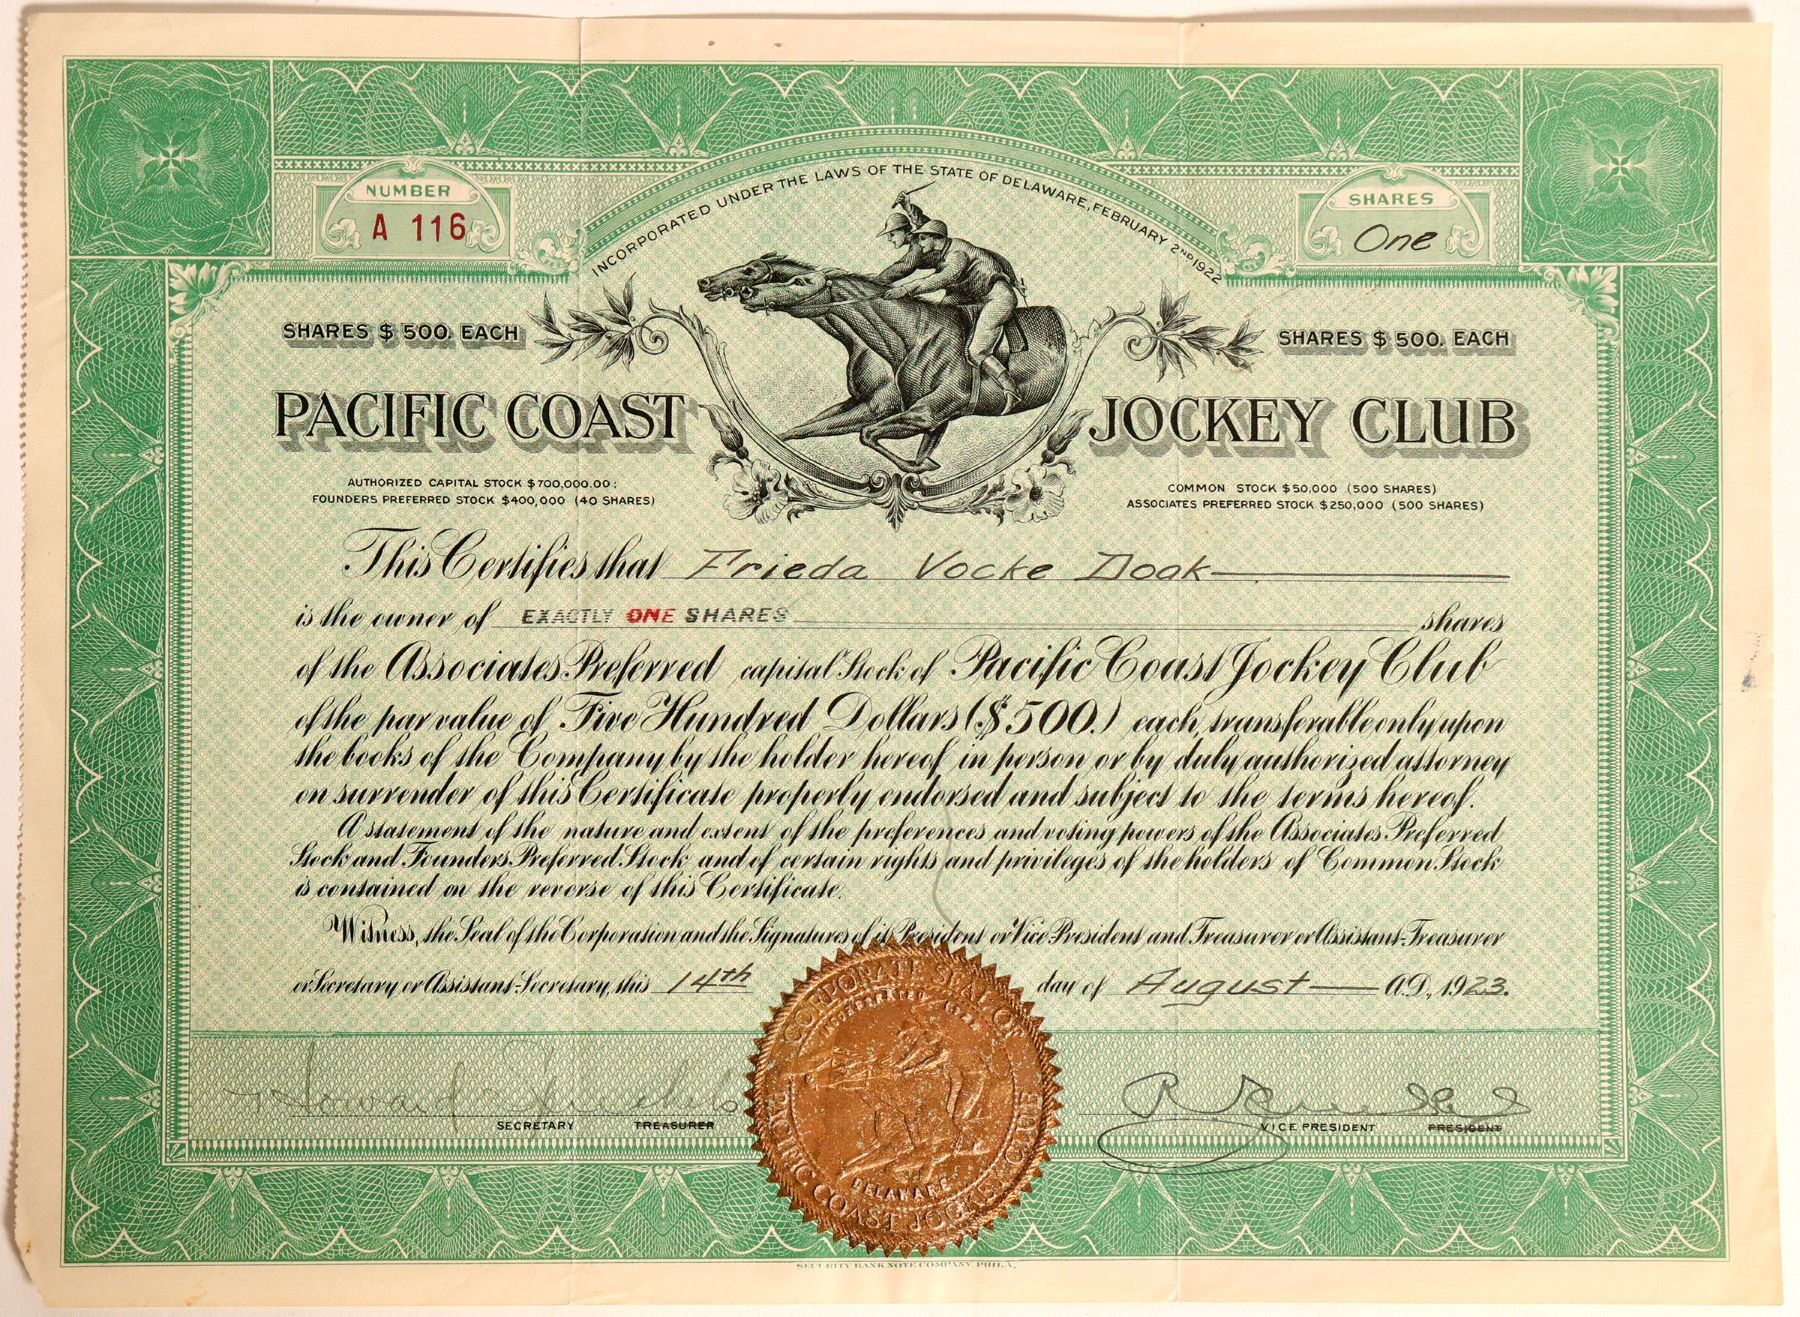 INCORPORATED UNDER THE LAWS OF THE STATE OF DELAWARE, FEBRUARY 2ND 1922
NUMBER
A 116
SHARES
One
SHARES $500. EACH
SHARES $500. EACH
PACIFIC COAST JOCKEY CLUB
AUTHORIZED CAPITAL STOCK $700,000.00:
FOUNDERS PREFERRED STOCK $400,000 (40 SHARES)
COMMON STOCK $50,000 (500 SHARES)
ASSOCIATES PREFERRED STOCK $250,000 (500 SHARES)
This Certifies that Frieda Vocke Doak
is the owner of EXACTLY ONE SHARES shares
of the Associates Preferred capital Stock of Pacific Coast Jockey Club
of the par value of Five Hundred Dollars ($500.) each, transferable only upon
the books of the Company by the holder hereof in person or by duly authorized attorney
on surrender of this Certificate properly endorsed and subject to the terms hereof.
A statement of the nature and extent of the preferences and voting powers of the Associates Preferred
Stock and Founders Preferred Stock and of certain rights and privileges of the holders of Common Stock
is contained on the reverse of this Certificate.
Witness, the Seal of the Corporation and the Signatures of its President or Vice President and Treasurer or Assistant-Treasurer
or Secretary or Assistant-Secretary, this 14th day of August A.D., 1923.
CORPORATE SEAL OF
PACIFIC COAST JOCKEY CLUB
DELAWARE
Howard
SECRETARY TREASURER
VICE PRESIDENT PRESIDENT
SECURITY BANK NOTE COMPANY, PHILA.